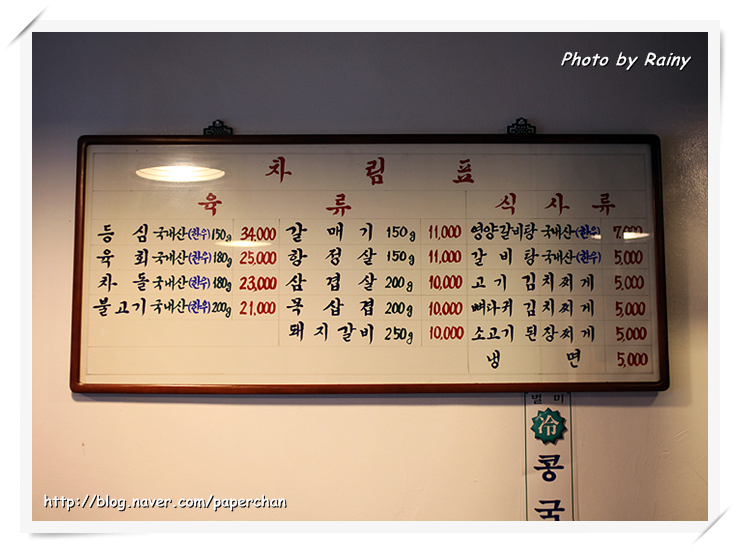 Photo by Rainy
차림표
육류 식사류
등심 국내산(한우)150g 34,000 갈매기 150g 11,000 영양갈비탕 국내산(한우) 7,000
육회 국내산(한우)180g 25,000 항정살 150g 11,000 갈비탕 국내산(한우) 5,000
차돌 국내산(한우)180g 23,000 삼겹살 200g 10,000 고기김치찌게 5,000
불고기 국내산(한우)200g 21,000 목삼겹 200g 10,000 뼈다귀김치찌게 5,000
돼지갈비 250g 10,000 소고기된장찌게 5,000
냉면 5,000
별미
冷
콩국
http://blog.naver.com/paperchan